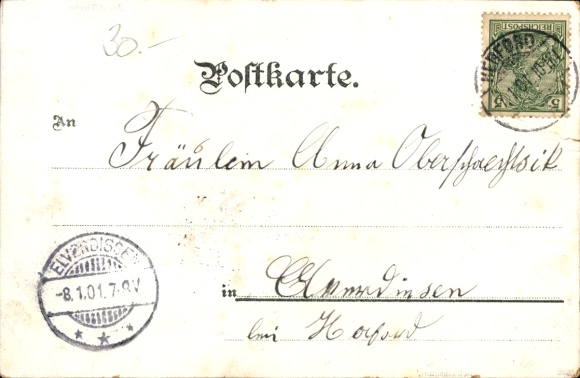 30.-
Postkarte.
REICHSPOST
5 5
HERFORD
An
Fräulein Anna Oberschachtsik
ELVERDISSEN
-8.1.01.7-8V
in Elverdissen
bei Herford